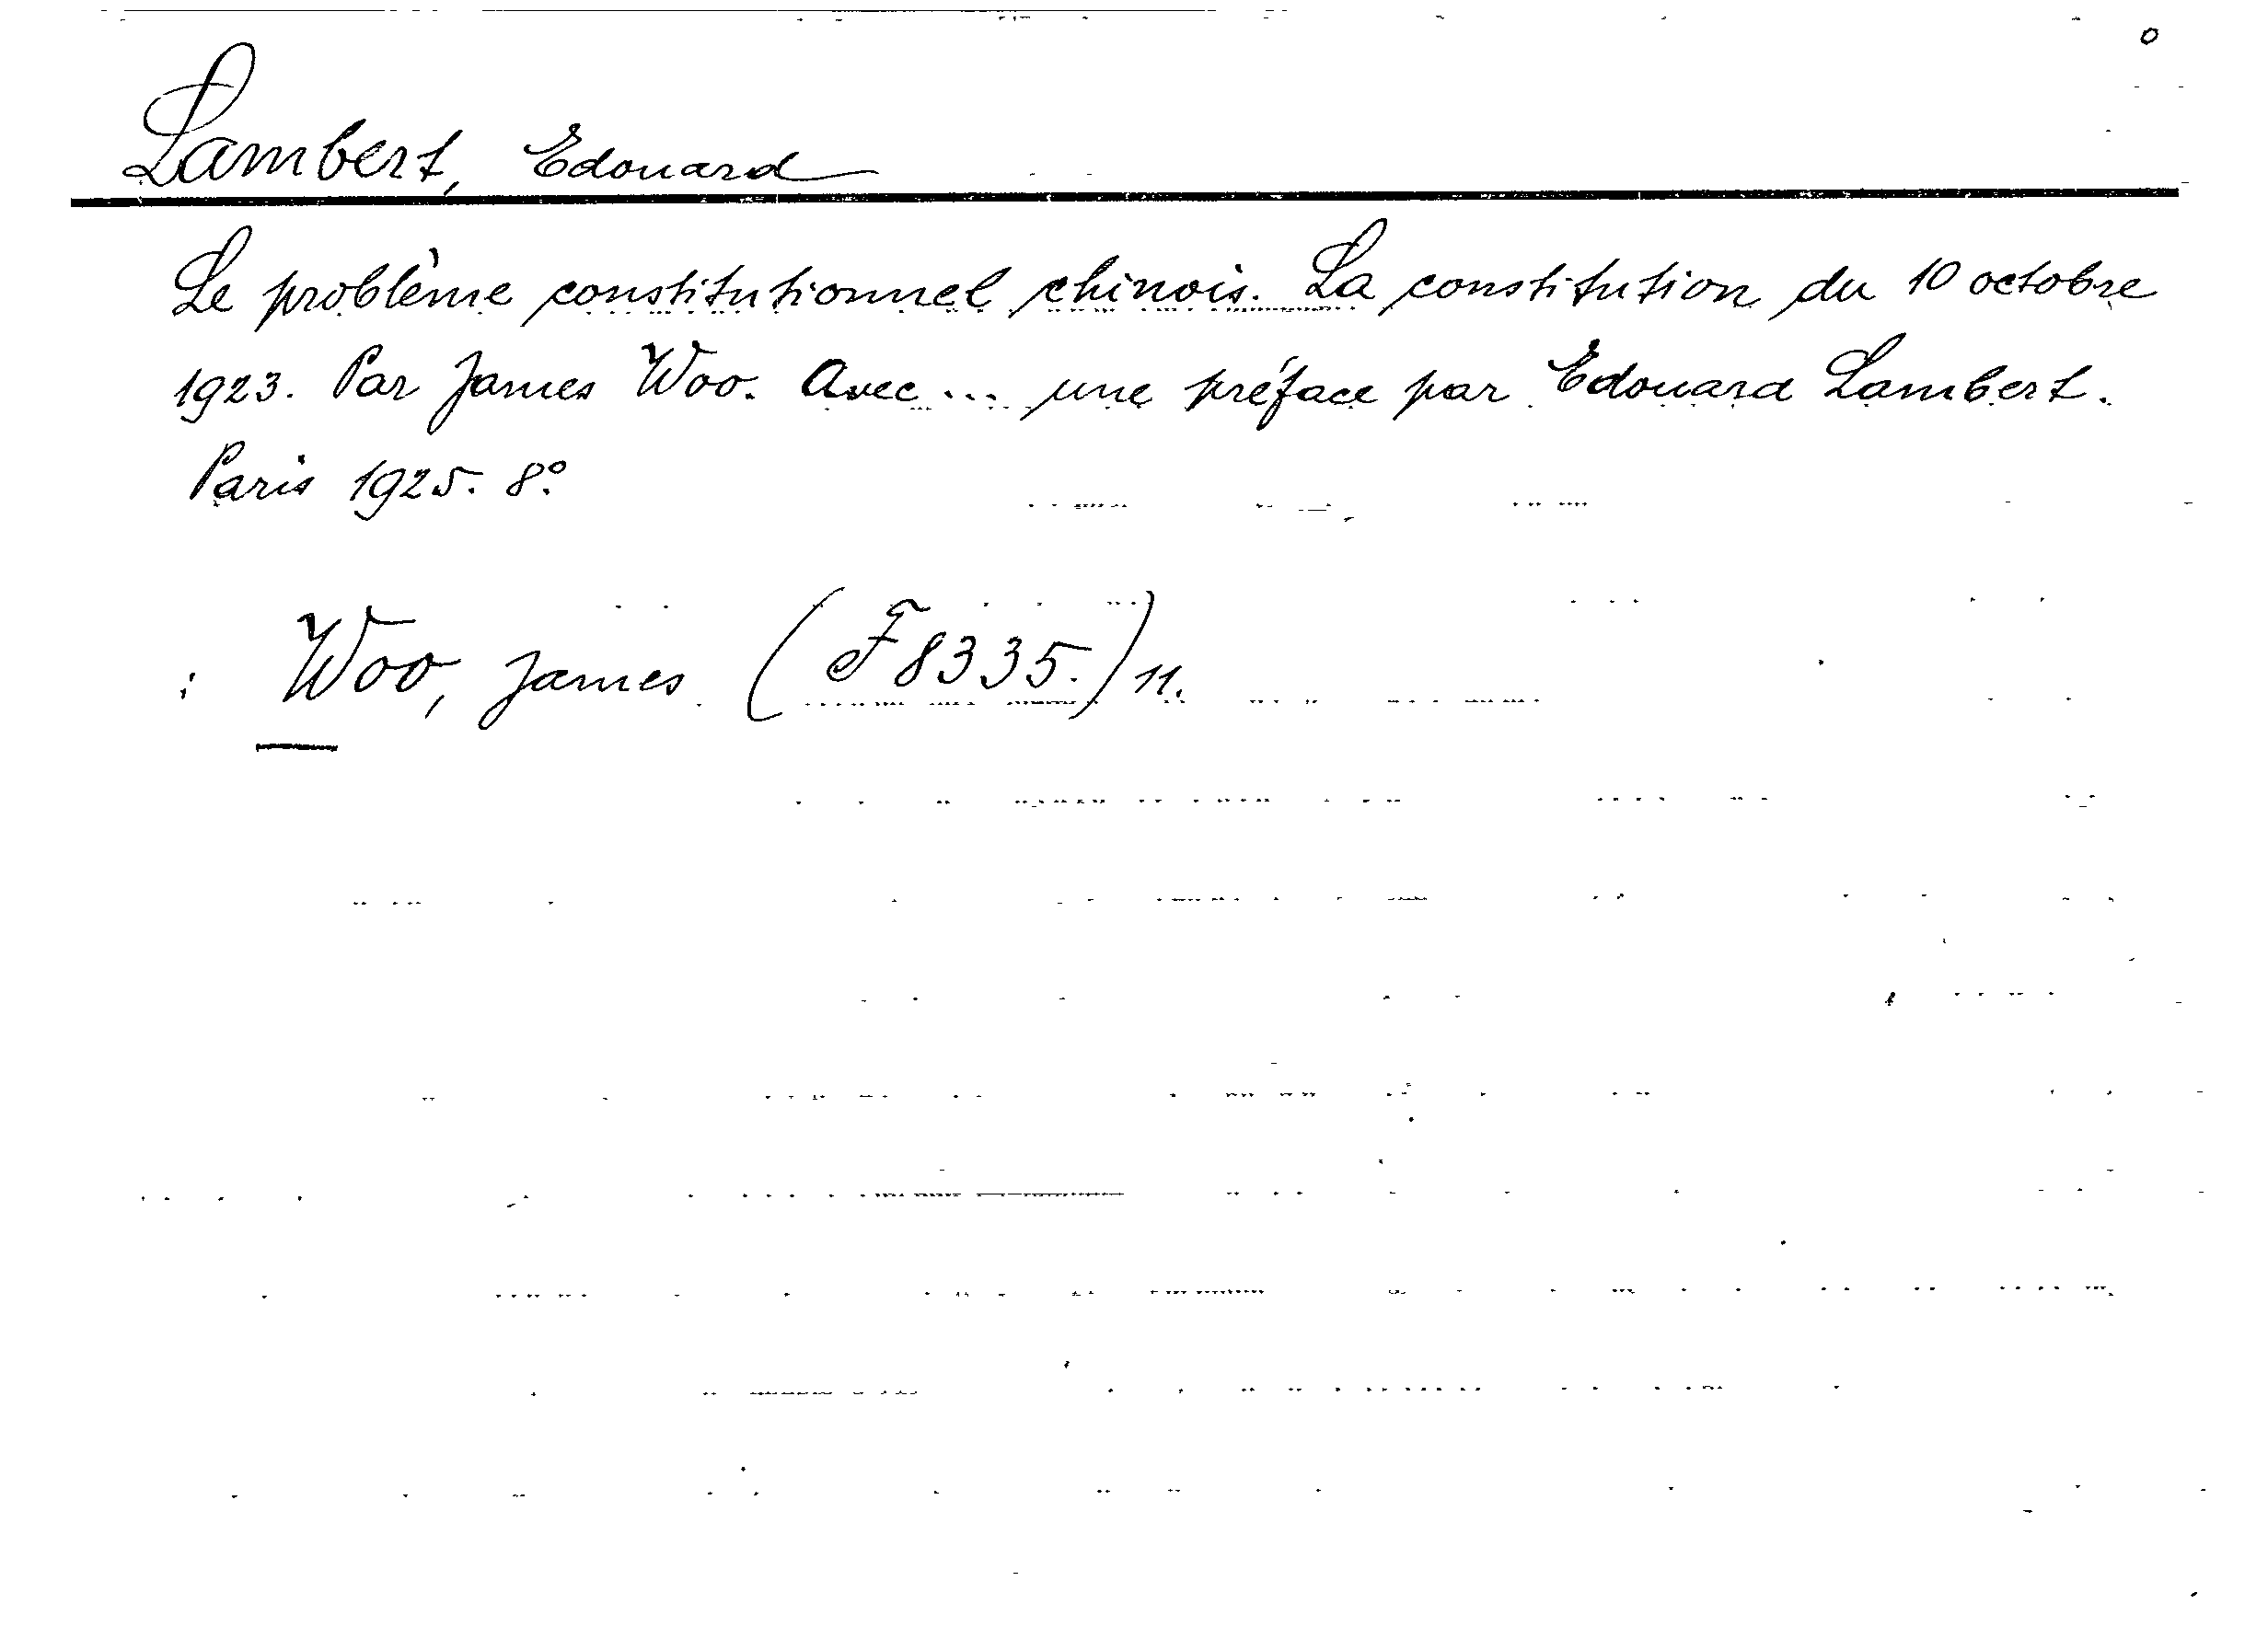 Lambert, Edouard
Le problème constitutionnel chinois. La constitution du 10 octobre
1923. Par James Woo. Avec ... une préface par Edouard Lambert.
Paris 1925. 8°.
: Woo, James (F 8335.) 11.